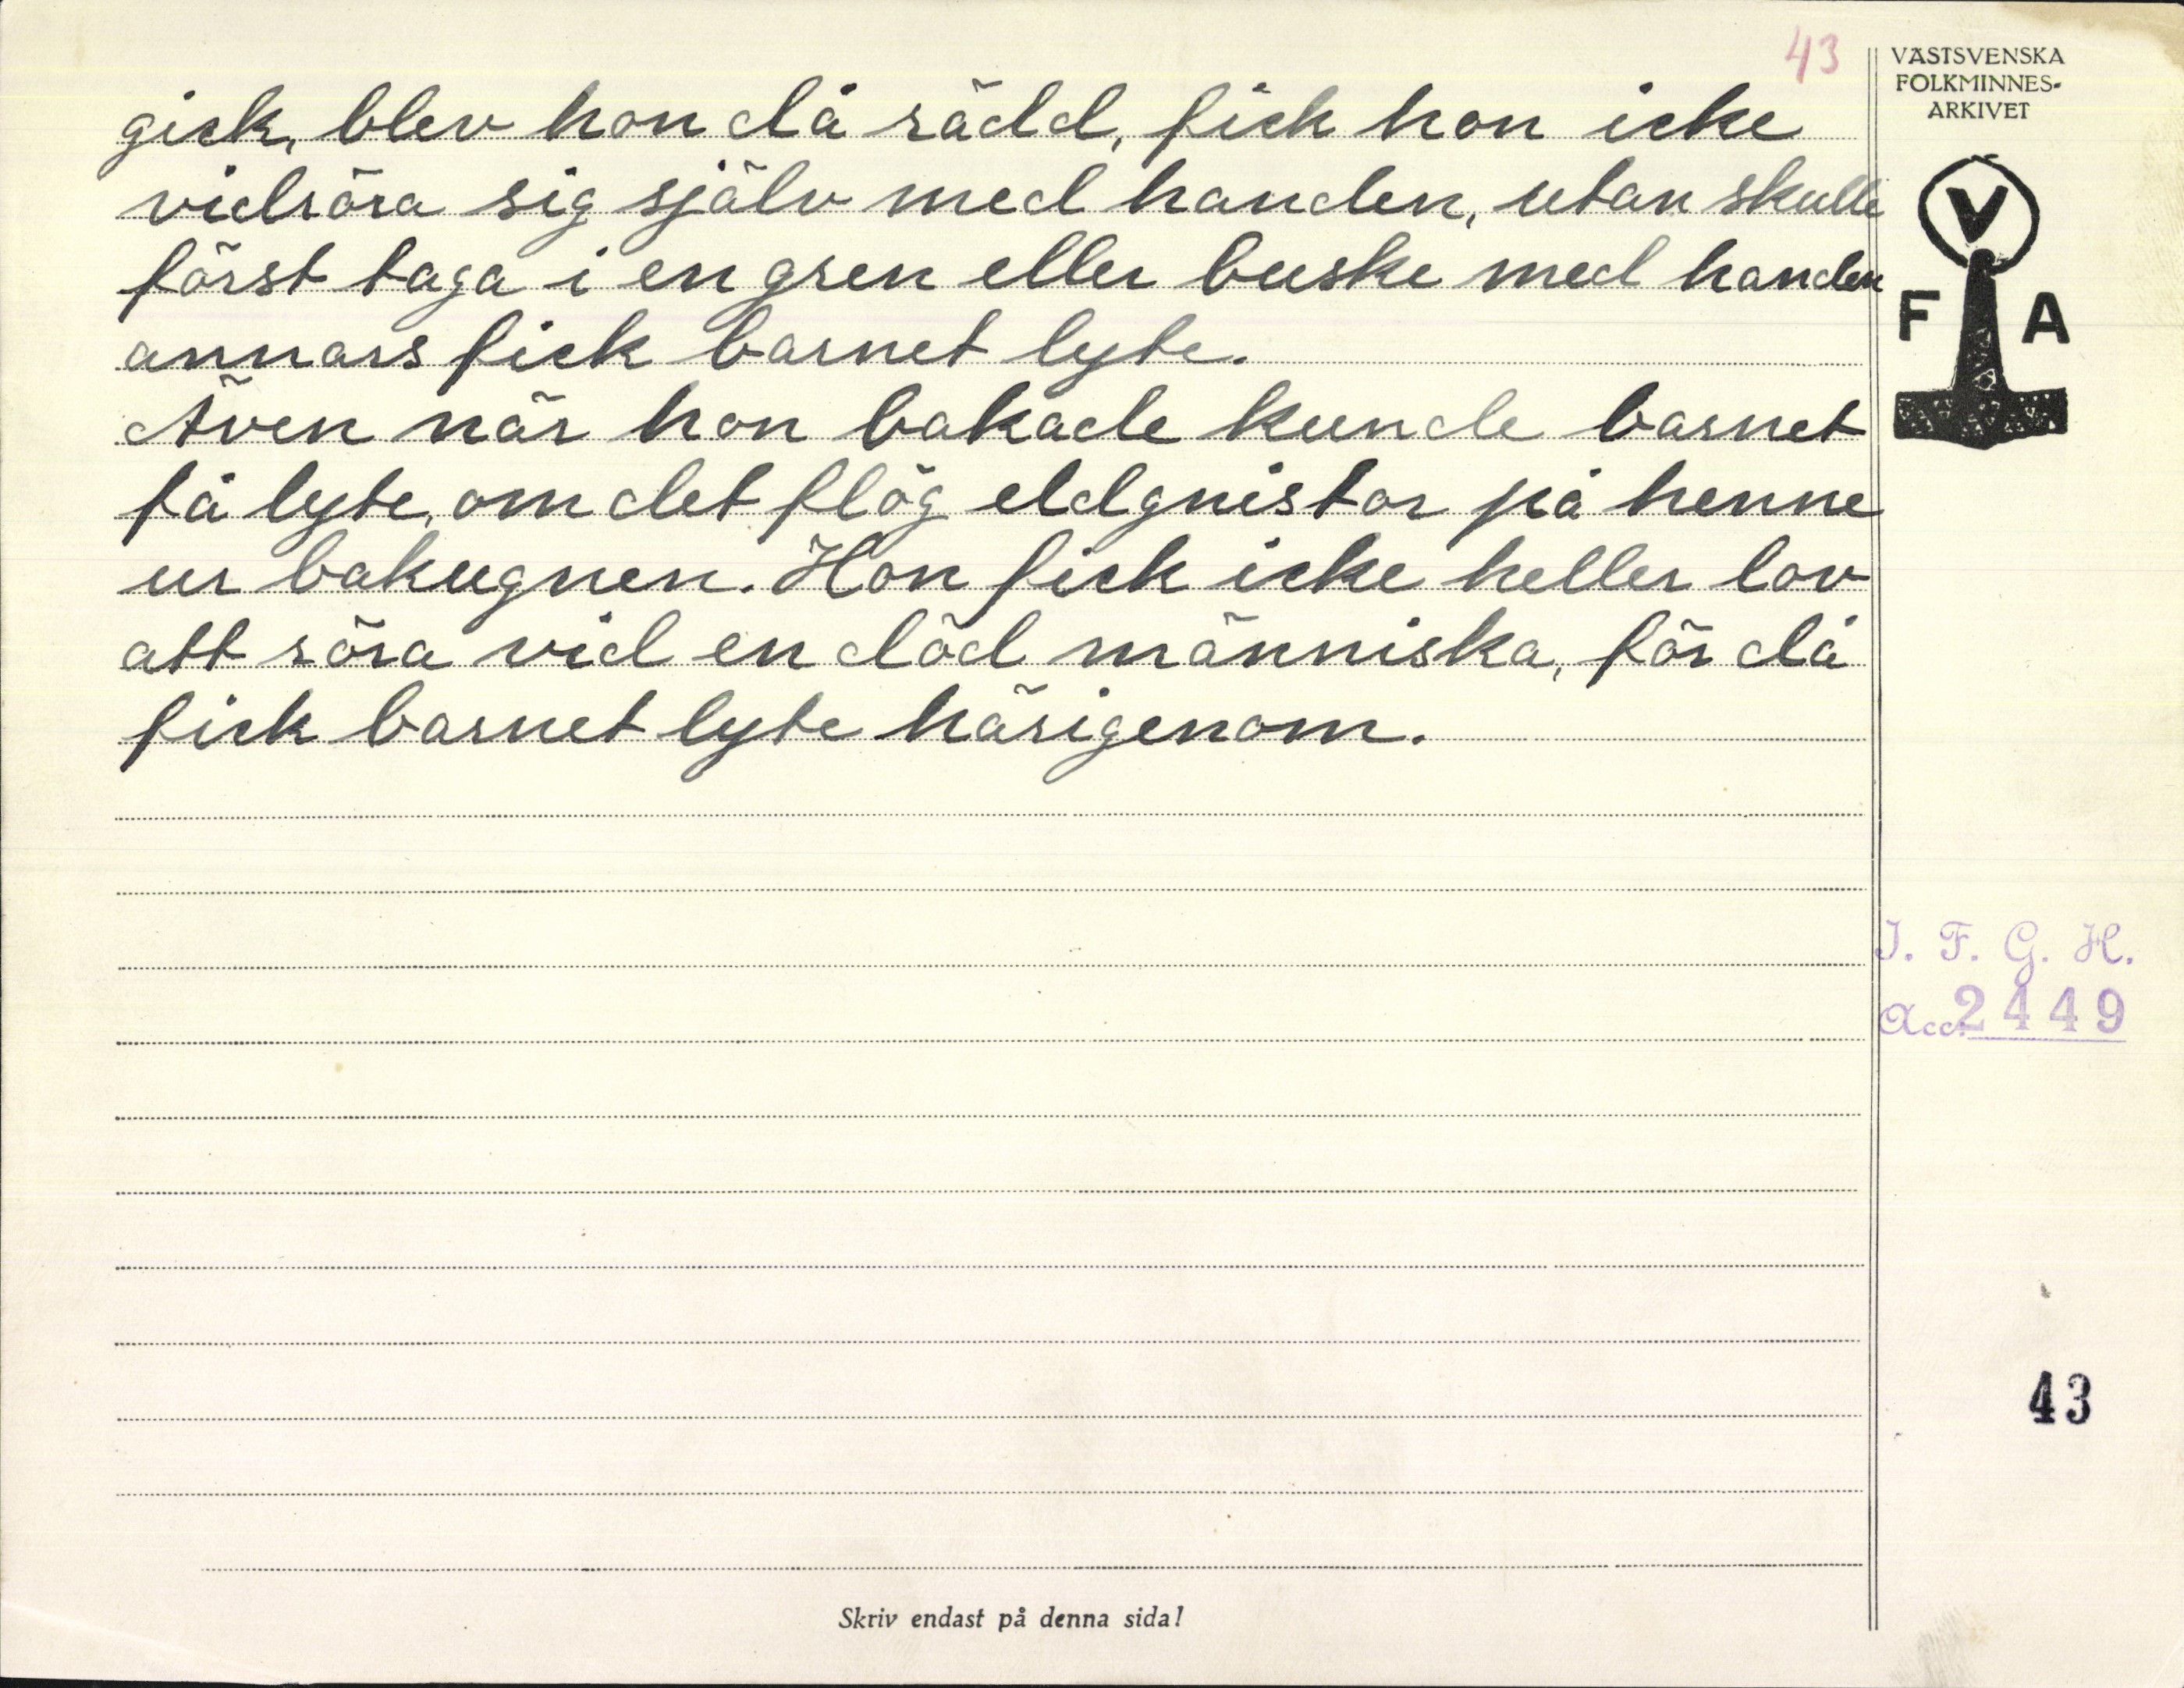 43
gick, blev hon då rädd, fick hon icke
vidröra sig själv med handen, utan skulle
först taga i en gren eller buske med handen
annars fick barnet lyte.
Även när hon bakade kunde barnet
få lyte, om det flög eldgnistor på henne
ur bakugnen. Hon fick icke heller lov
att röra vid en död människa, för då
fick barnet lyte härigenom.
VÄSTSVENSKA
FOLKMINNES-
ARKIVET
V
F A
I. F. G. H.
Acc. 2449
43
Skriv endast på denna sida!